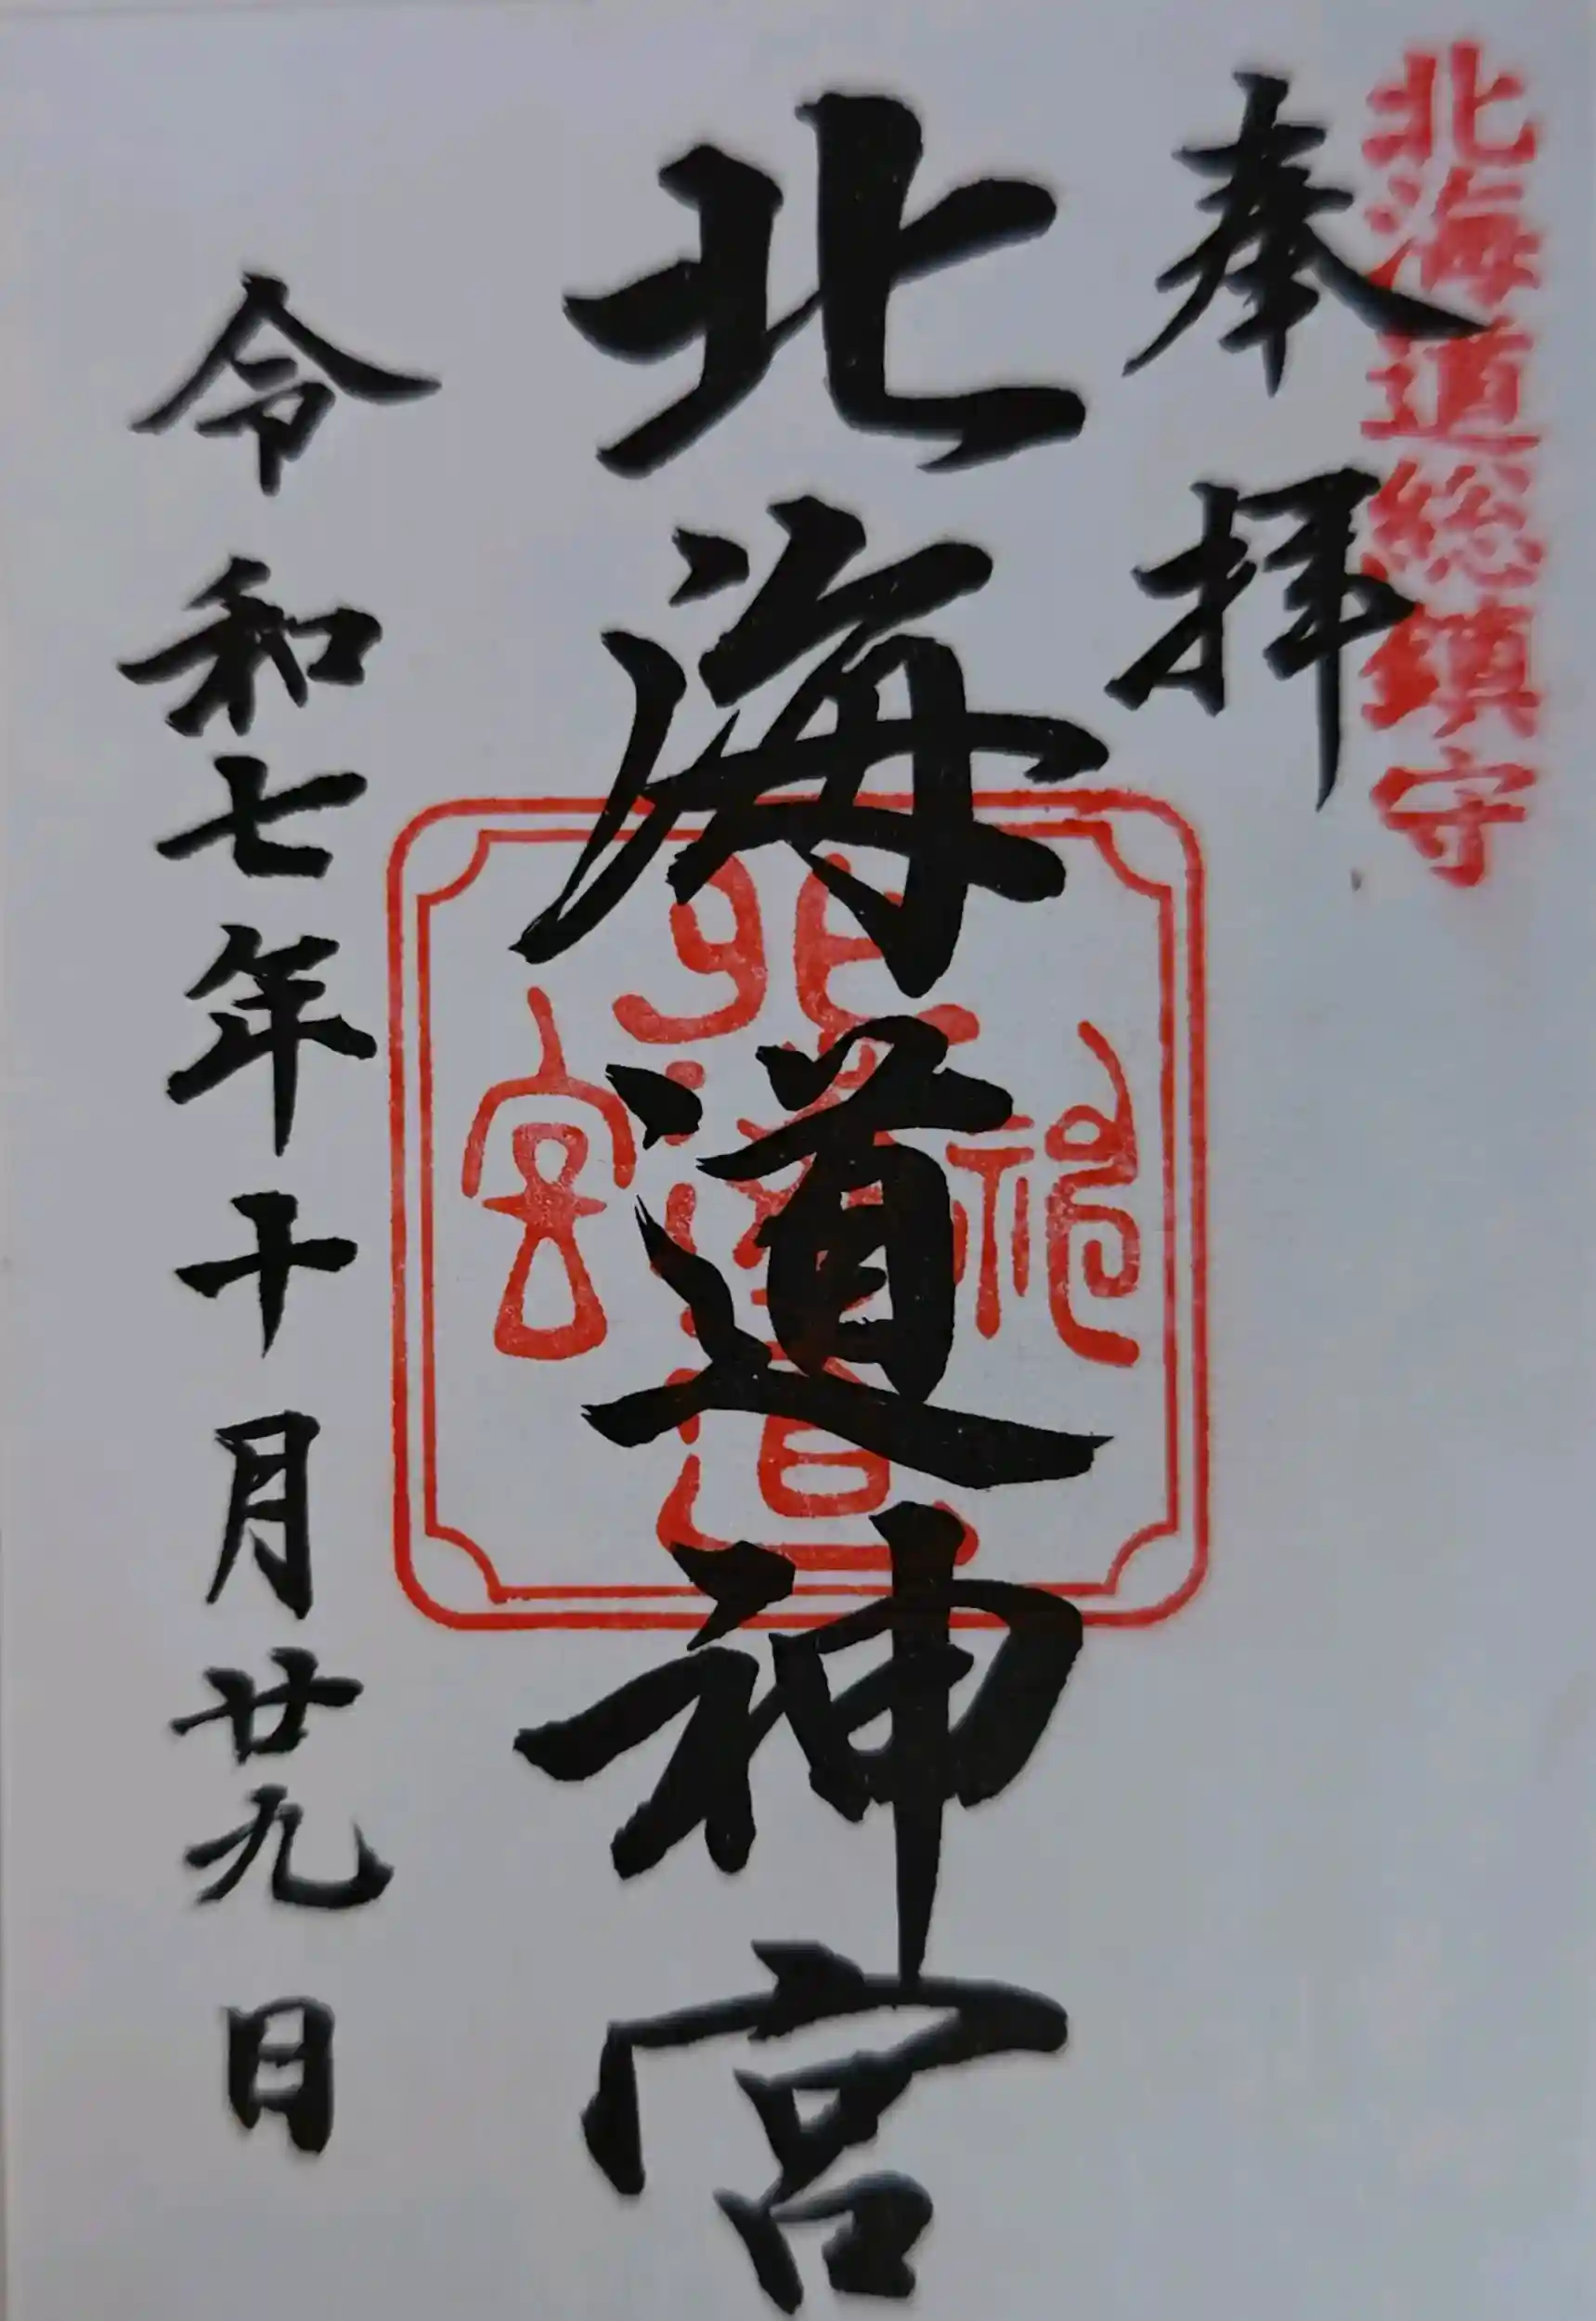 北海道総鎮守
奉拝
北海道神宮
北海道
神
宮
令和七年十月廿九日